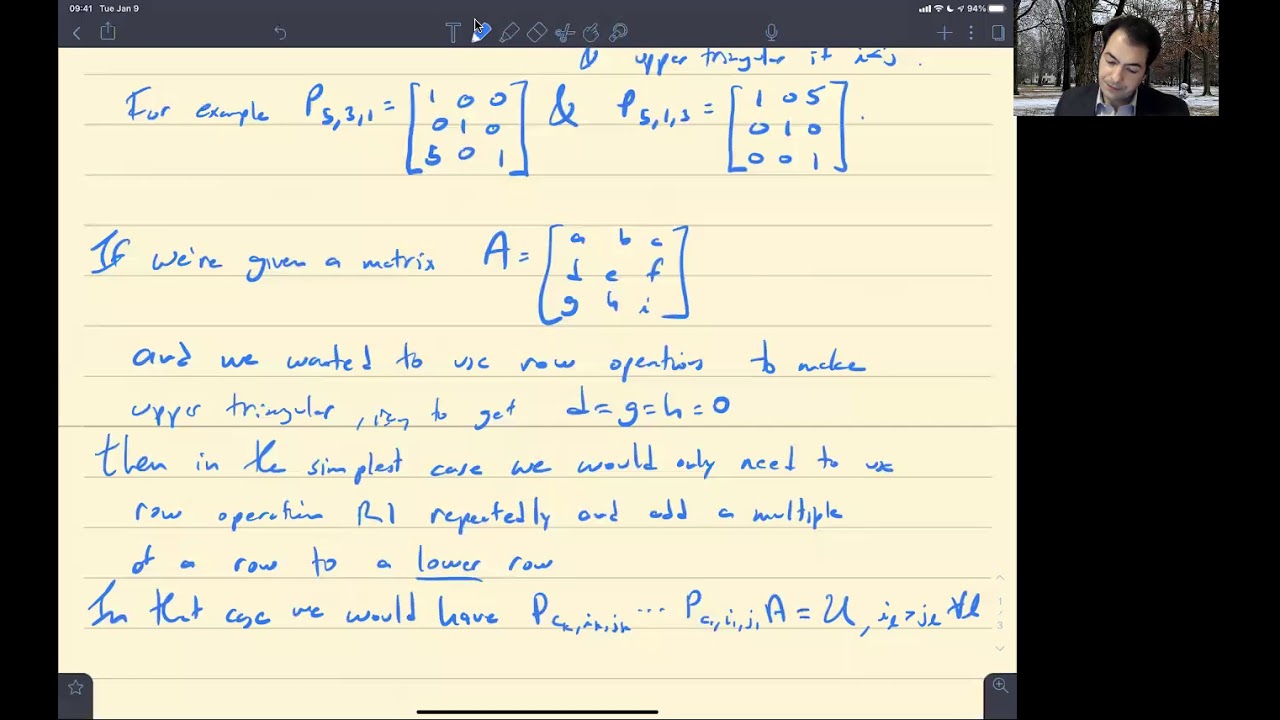 09:41 Tue Jan 9 94%
upper triangular if i<j .
For example P₅,₃,₁ = [1 0 0; 0 1 0; 5 0 1] & P₅,₁,₃ = [1 0 5; 0 1 0; 0 0 1] .
If we're given a matrix A = [a b c; d e f; g h i]
and we wanted to use row operations to make
upper triangular, to get d=g=h=0
then in the simplest case we would only need to use
row operation R1 repeatedly and add a multiple
of a row to a lower row
In that case we would have P_{cₖ,iₖ,jₖ} ... P_{c₁,i₁,j₁} A = U, i_ℓ>j_ℓ ∀ℓ